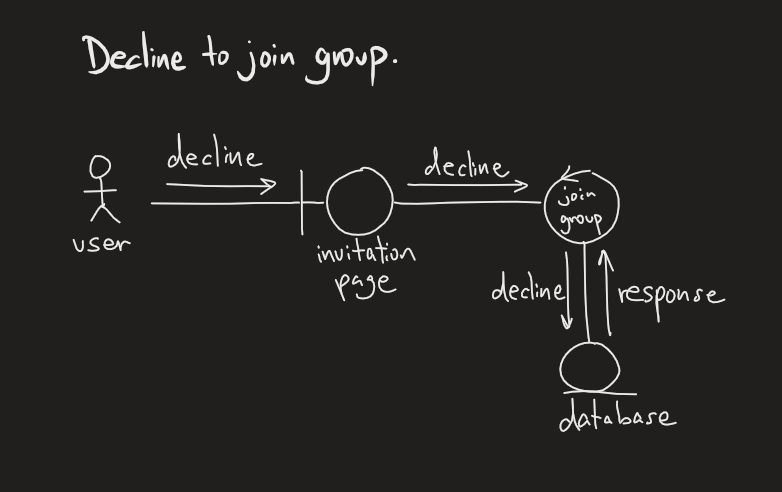 Decline to join group.
decline
decline
user
invitation
page
join
group
decline
response
database